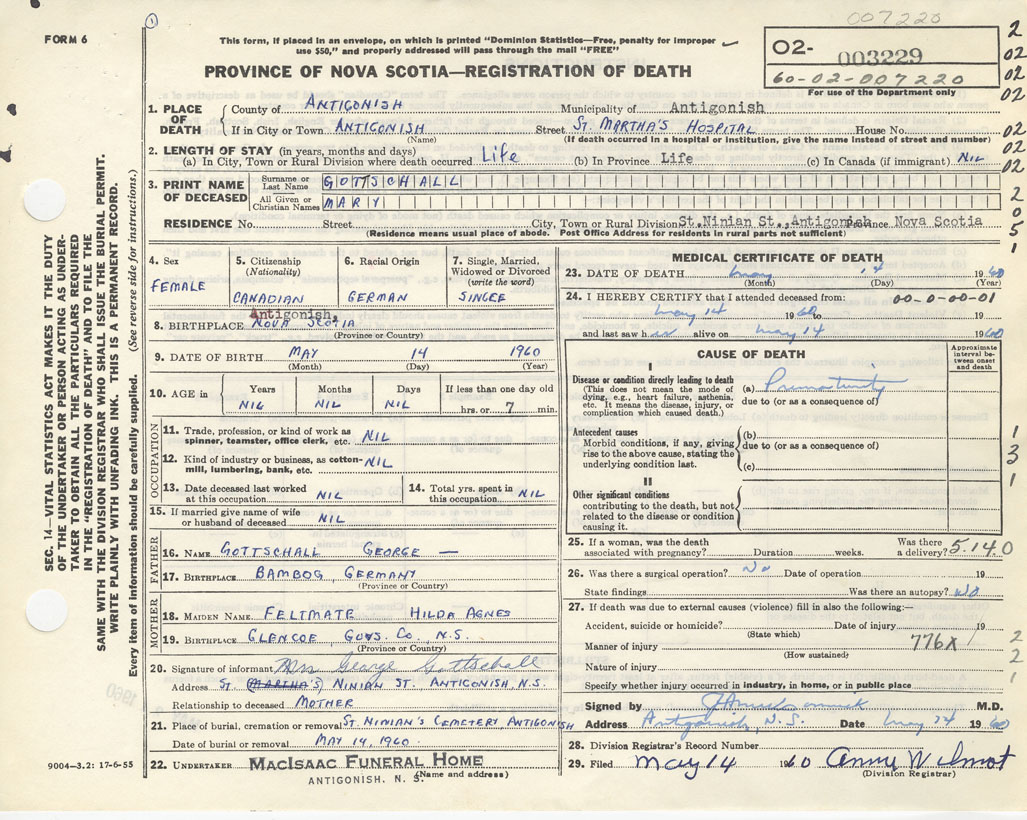 007220
1
FORM 6
This form, if placed in an envelope, on which is printed "Dominion Statistics—Free, penalty for improper
use $50," and properly addressed will pass through the mail "FREE"
02- 003229
60-02-007220
For use of the Department only
PROVINCE OF NOVA SCOTIA—REGISTRATION OF DEATH
1. PLACE OF DEATH
County of ANTIGONISH Municipality of Antigonish
If in City or Town ANTIGONISH Street ST. MARTHA'S HOSPITAL House No.
(Name) (If death occurred in a hospital or institution, give the name instead of street and number)
2. LENGTH OF STAY (in years, months and days)
(a) In City, Town or Rural Division where death occurred Life (b) In Province Life (c) In Canada (if immigrant) NIL
3. PRINT NAME OF DECEASED
Surname or Last Name GOTTSCHALL
All Given or Christian Names MARY
RESIDENCE No. Street City, Town or Rural Division St.Ninian St., Antigonish Province Nova Scotia
(Residence means usual place of abode. Post Office Address for residents in rural parts not sufficient)
4. Sex FEMALE
5. Citizenship (Nationality) CANADIAN
6. Racial Origin GERMAN
7. Single, Married, Widowed or Divorced (write the word) SINGLE
Antigonish,
8. BIRTHPLACE NOVA SCOTIA
(Province or Country)
9. DATE OF BIRTH MAY 14 1960
(Month) (Day) (Year)
10. AGE in Years NIL Months NIL Days NIL If less than one day old hrs. or 7 min.
OCCUPATION
11. Trade, profession, or kind of work as
spinner, teamster, office clerk, etc. NIL
12. Kind of industry or business, as cotton-
mill, lumbering, bank, etc. NIL
13. Date deceased last worked
at this occupation NIL
14. Total yrs. spent in
this occupation NIL
15. If married give name of wife
or husband of deceased NIL
FATHER
16. NAME GOTTSCHALL GEORGE —
17. BIRTHPLACE BAMBOG, GERMANY
(Province or Country)
MOTHER
18. MAIDEN NAME FELTMATE HILDA AGNES
19. BIRTHPLACE GLENCOE GUYS. CO., N.S.
(Province or Country)
20. Signature of informant Mrs George Gottschall
Address ST. (MARTHA'S) NINIAN ST. ANTIGONISH, N.S.
Relationship to deceased MOTHER
21. Place of burial, cremation or removal ST. NINIAN'S CEMETERY ANTIGONISH
Date of burial or removal MAY 14, 1960
22. UNDERTAKER MACISAAC FUNERAL HOME
ANTIGONISH, N. S. (Name and address)
MEDICAL CERTIFICATE OF DEATH
23. DATE OF DEATH May 14 1960
(Month) (Day) (Year)
24. I HEREBY CERTIFY that I attended deceased from: 00-0-00-01
May 14 1960,
and last saw h alive on May 14 1960
CAUSE OF DEATH
Approximate interval between onset and death
I
Disease or condition directly leading to death
(This does not mean the mode of
dying, e.g., heart failure, asthenia,
etc. It means the disease, injury, or
complication which caused death.)
(a) Prematurity
due to (or as a consequence of)
Antecedent causes
Morbid conditions, if any, giving
rise to the above cause, stating the
underlying condition last.
(b)
due to (or as a consequence of)
(c)
II
Other significant conditions
contributing to the death, but not
related to the disease or condition
causing it.
25. If a woman, was the death
associated with pregnancy? Duration weeks. Was there
a delivery? 5.14.0
26. Was there a surgical operation? No Date of operation 19
State findings Was there an autopsy? No
27. If death was due to external causes (violence) fill in also the following:—
Accident, suicide or homicide? Date of injury 19
(State which)
Manner of injury 776X
(How sustained)
Nature of injury
Specify whether injury occurred in industry, in home, or in public place
Signed by M.D.
Address Antigonish, N.S. Date May 24 1960
28. Division Registrar's Record Number
29. Filed May 14 1960 Annie Wilmot
(Division Registrar)
SEC. 14—VITAL STATISTICS ACT MAKES IT THE DUTY
OF THE UNDERTAKER OR PERSON ACTING AS UNDER-
TAKER TO OBTAIN ALL THE PARTICULARS REQUIRED
IN THE "REGISTRATION OF DEATH" AND TO FILE THE
SAME WITH THE DIVISION REGISTRAR WHO SHALL ISSUE THE BURIAL PERMIT.
WRITE PLAINLY WITH UNFADING INK. THIS IS A PERMANENT RECORD.
Every item of information should be carefully supplied. (See reverse side for instructions.)
9004—3.2: 17-6-55
2
02
02
02
02
02
02
2
0
5
1
1
3
1
2
2
1